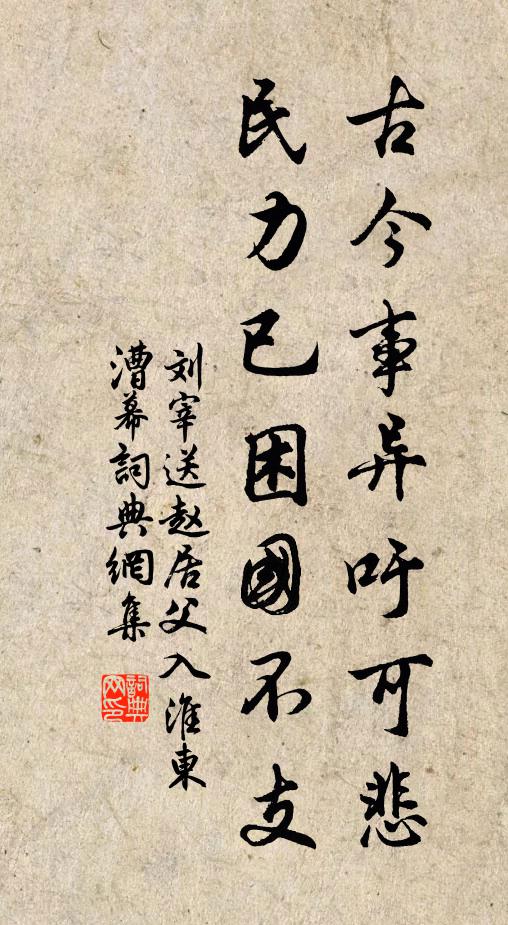 古今事异吁可悲
民力已困國不支
刘宰送赵居父入淮東
漕幕詞典網集
詞典網印